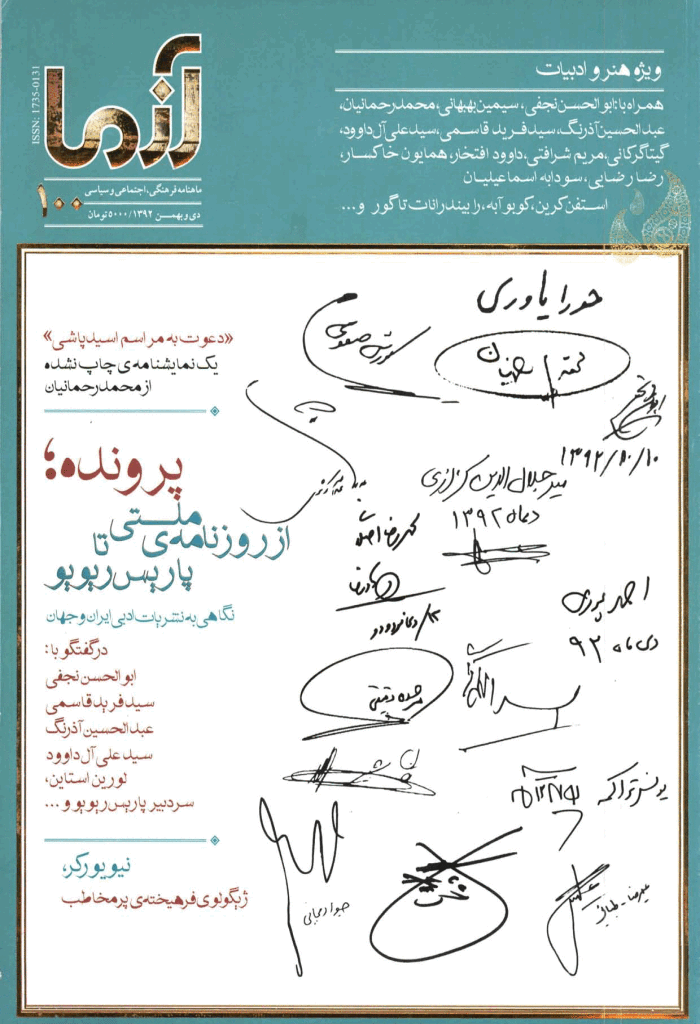 آزما
ISSN: 1735-0131
ماهنامه فرهنگی، اجتماعی و سیاسی
۱۰۰
دی و بهمن ۱۳۹۲/ ۵۰۰۰ تومان
ویژه هنر و ادبیات
همراه با: ابوالحسن نجفی، سیمین بهبهانی، محمد رحمانیان،
عبدالحسین آذرنگ، سید فرید قاسمی، سیدعلی آل داوود،
گیتا گرکانی، مریم شرافتی، داوود افتخار، همایون خاکسار،
رضا رضایی، سودابه اسماعیلیان
استفن کرین، کوبو آبه، رابیندرانات تاگور و...
«دعوت به مراسم اسیدپاشی»
یک نمایشنامه‌ی چاپ نشده
از محمد رحمانیان
پرونده؛
از روزنامه‌ی ملتی تا
پاریس ریویو
نگاهی به نشریات ادبی ایران و جهان
در گفتگو با:
ابوالحسن نجفی
سید فرید قاسمی
عبدالحسین آذرنگ
سید علی آل داوود
لورین استاین،
سردبیر پاریس ریویو و...
نیویورکر،
ژیگولوی فرهیخته‌ی پرمخاطب
حورا یاوری
۱۳۹۲/۱۰/۱۰
میرجلال الدین کزازی
دی‌ماه ۱۳۹۲
احمد پوری
دی ماه ۹۲
یونس تراکمه
جواد مجابی
علیرضا طبایی